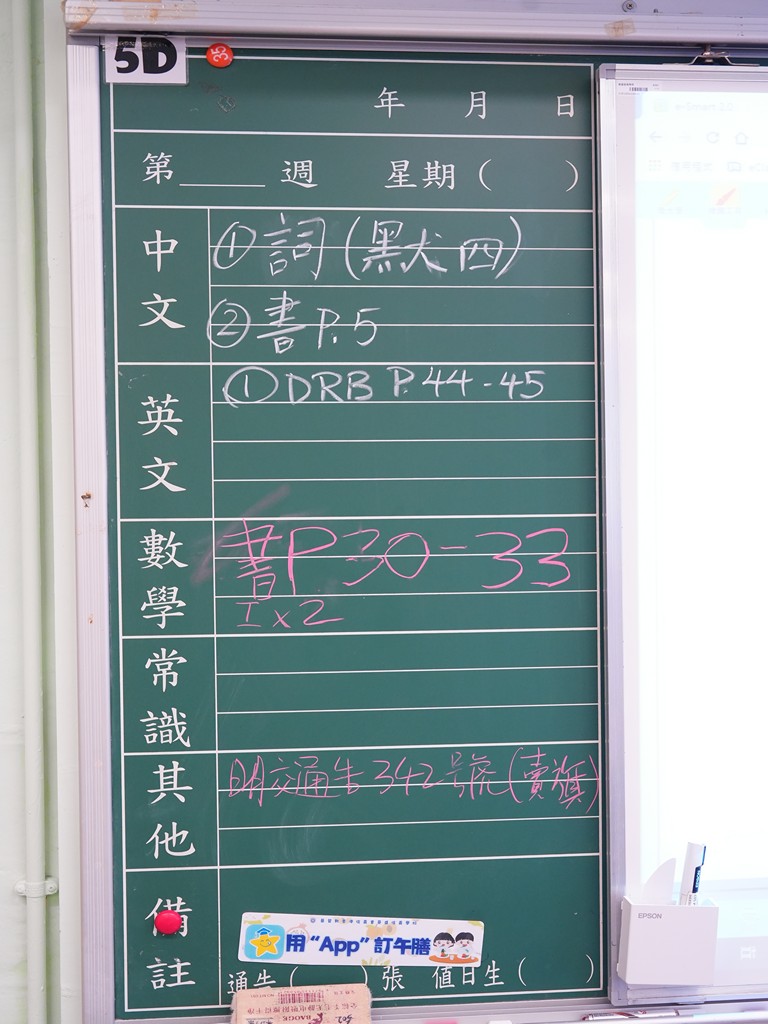 5D
35
年 月 日
第____週 星期（ ）
中文
①詞(默四)
②書P.5
英文
①DRB P.44-45
數學
書P30-33
I x 2
常識
其他
明交通告342號(賣旗)
備註
用“App”訂午膳
通告（ ）張 值日生（ ）
EPSON